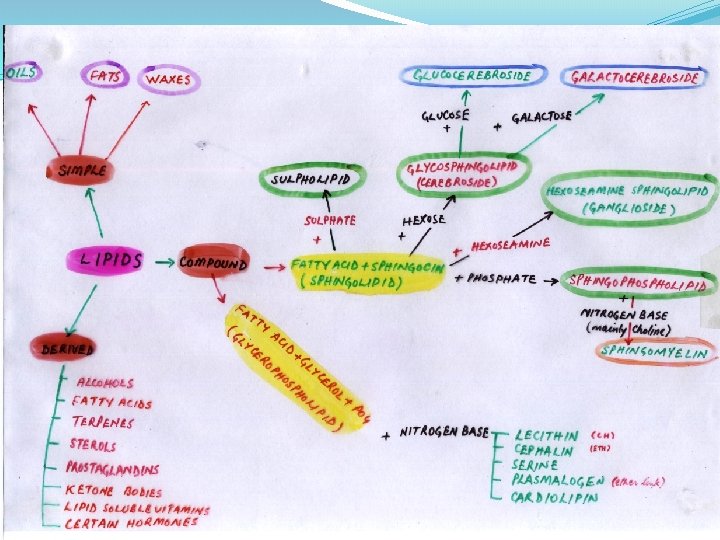 OILS
FATS
WAXES
SIMPLE
LIPIDS
COMPOUND
DERIVED
ALCOHOLS
FATTY ACIDS
TERPENES
STEROLS
PROSTAGLANDINS
KETONE BODIES
LIPID SOLUBLE VITAMINS
CERTAIN HORMONES
GLUCOCEREBROSIDE
GALACTOCEREBROSIDE
GLUCOSE
+
+ GALACTOSE
SULPHOLIPID
GLYCOSPHINGOLIPID
(CEREBROSIDE)
HEXOSEAMINE SPHINGOLIPID
(GANGLIOSIDE)
SULPHATE
+
HEXOSE
+
+ HEXOSEAMINE
FATTY ACID + SPHINGOCIN
(SPHINGOLIPID)
+ PHOSPHATE
SPHINGOPHOSPHOLIPID
+
NITROGEN BASE
(mainly Choline)
SPHINGOMYELIN
FATTY ACID + GLYCEROL + PO4
(GLYCEROPHOSPHOLIPID)
+ NITROGEN BASE
LECITHIN (CH)
CEPHALIN (ETH)
SERINE
PLASMALOGEN (ether link)
CARDIOLIPIN